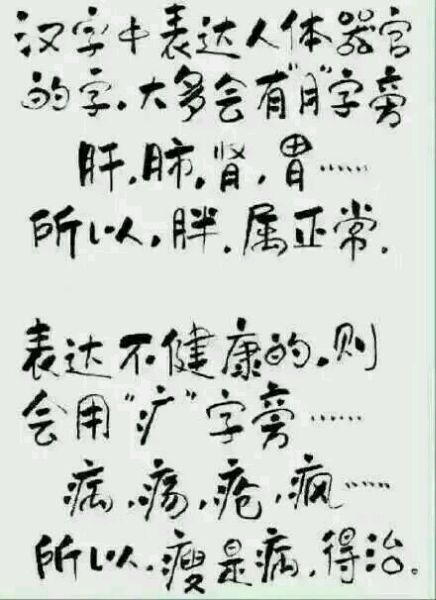 汉字中表达人体器官
的字,大多会有"月"字旁
肝,肺,肾,胃……
所以,胖,属正常.
表达不健康的,则
会用"疒"字旁……
病,疡,疮,疯……
所以,瘦是病,得治。